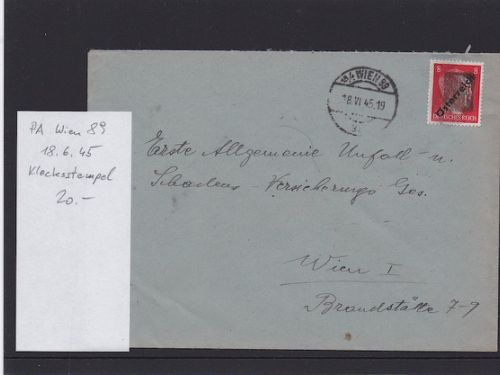 PA Wien 89
18.6.45
Kleckerstempel
20.-
18.4 WIEN 89
18 VI 45.19
8 8
Österreich
DEUTSCHES REICH
Erste Allgemeine Unfall- u.
Schadens-Versicherungs Ges.
Wien I
Brandstätte 7-9